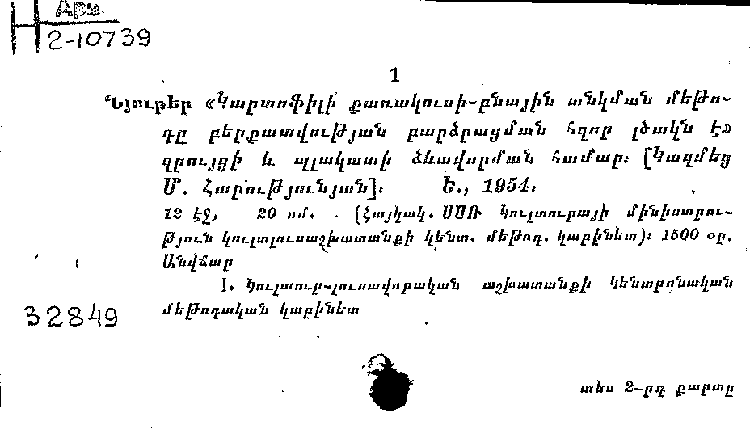 Արև
Н 2-10739
1
Նյութեր «Կարտոֆիլի քառակուսի-բնային տնկման մեթո-
դը բերքատվության բարձրացման հզոր լծակն է»
զրույցի և պլակատի ձևավորման համար։ [Կազմեց
Մ. Հարությունյան]։ Ե., 1954։
12 էջ, 20 սմ. (Հայկակ. ՍՍՌ կուլտուրայի մինիստրու-
թյուն կուլտլուսաշխատանքի կենտ. մեթոդ. կաբինետ)։ 1500 օր.
Անվճար
I. Կուլտուր-լուսավորական աշխատանքի կենտրոնական
մեթոդական կաբինետ
32849
տես 2-րդ քարտը